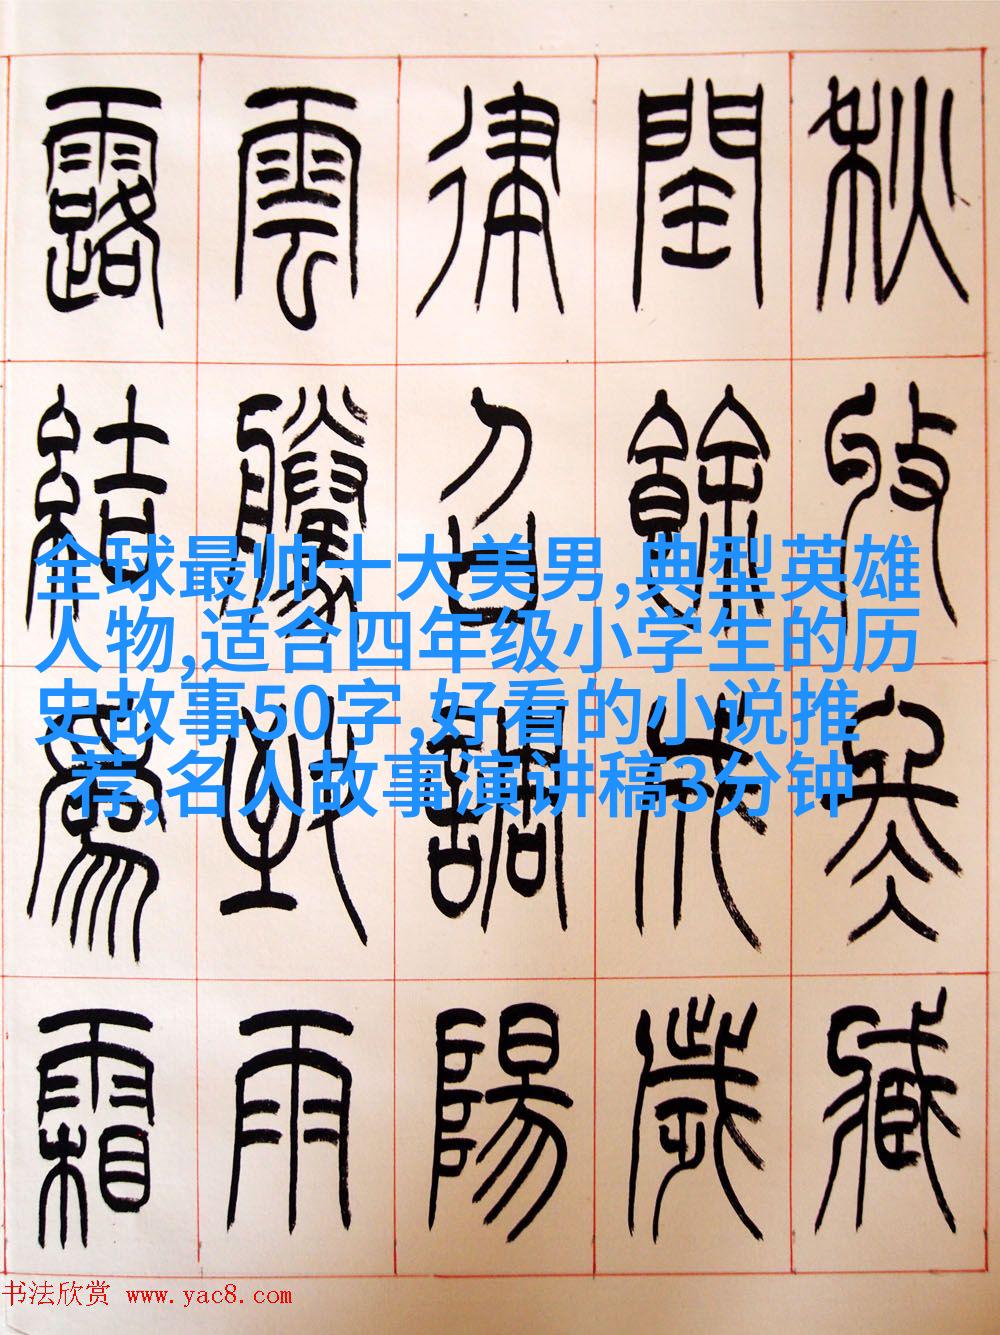 秋收冬藏
閏餘成歲
律召調陽
雲騰致雨
露結爲霜
全球最帅十大美男,典型英雄
人物,适合四年级小学生的历
史故事50字,好看的小说推
荐,名人故事演讲稿3分钟
书法欣赏 www.yac8.com